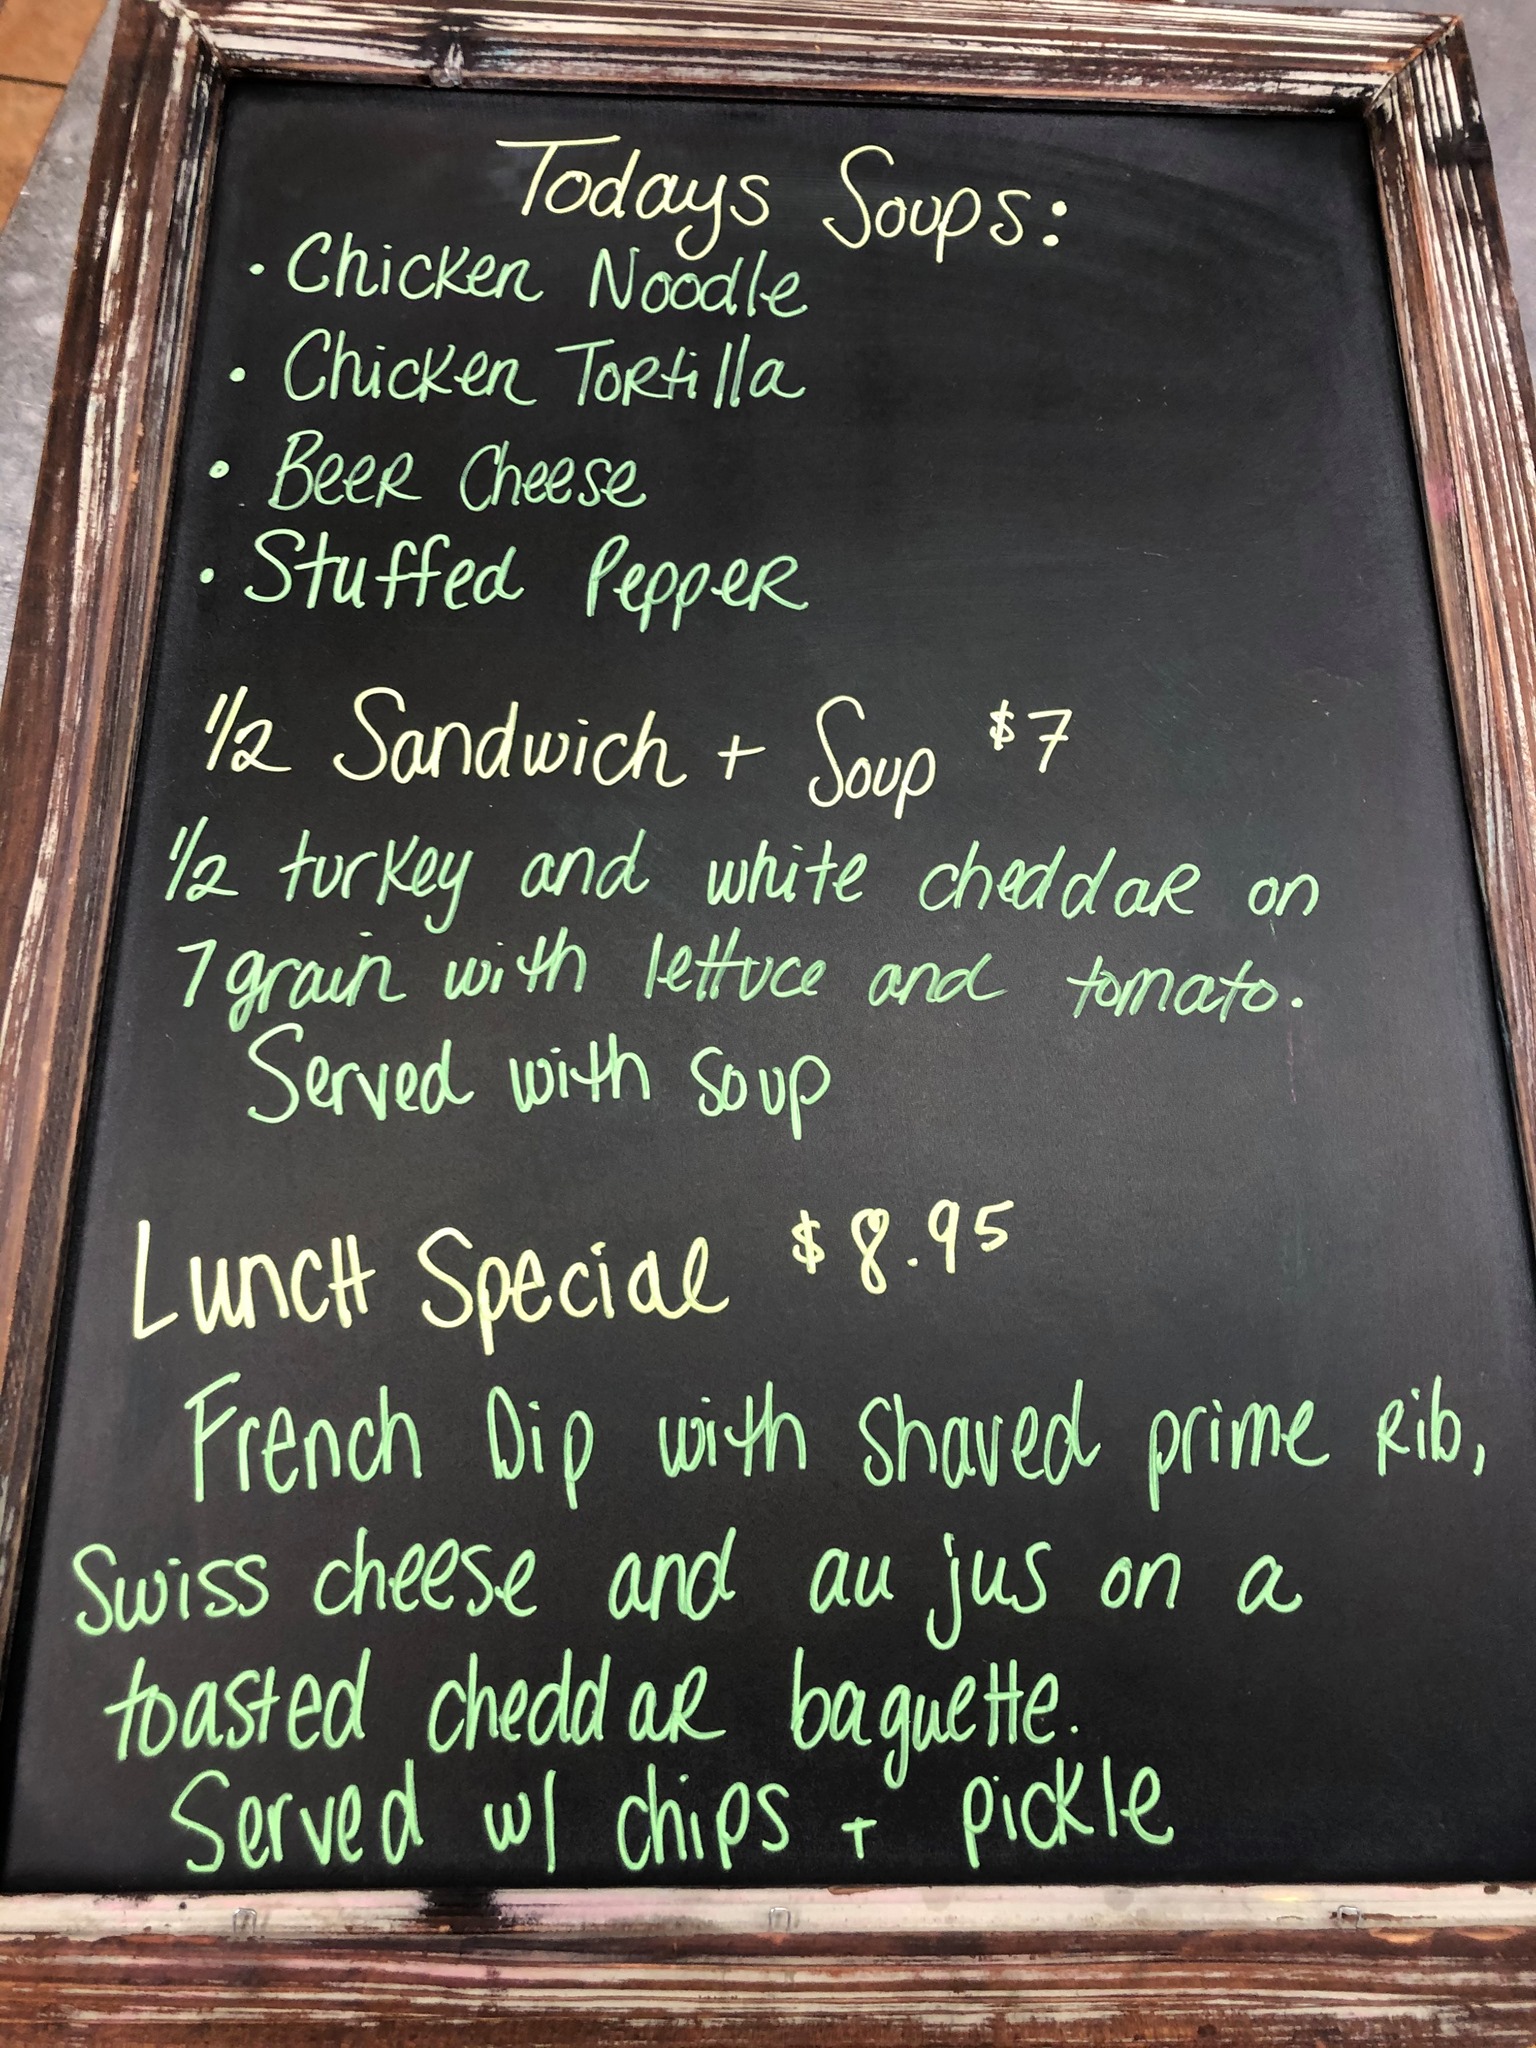 Todays Soups:
• Chicken Noodle
• Chicken Tortilla
• Beer Cheese
• Stuffed Pepper
1/2 Sandwich + Soup $7
1/2 turkey and white cheddar on
7 grain with lettuce and tomato.
Served with soup
Lunch Special $8.95
French Dip with shaved prime rib,
Swiss cheese and au jus on a
toasted cheddar baguette.
Served w/ chips + pickle